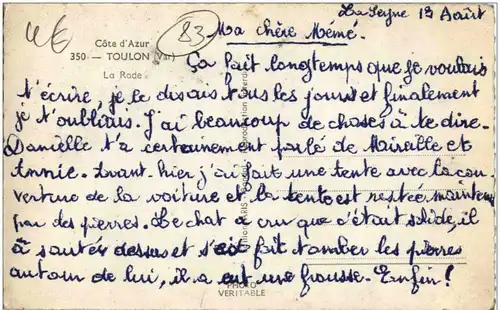 La Seyne 13 Août
83
Côte d'Azur
350 - TOULON (Var)
La Rade
Ma chère Mémé.
Ça fait longtemps que je voulais
t'écrire, je le disais tous les jours et finalement
je t'oubliais. J'ai beaucoup de choses à te dire.
Danielle t'a certainement parlé de Mireille et
Annie. Avant-hier j'ai fait une tente avec la cou-
verture de la voiture et la tente est restée maintenu
par des pierres. Le chat a cru que c'était solide, il
à sauté dessus et s'est fait tomber les pierres
autour de lui, il a eut une frousse. Enfin!
PHOTO
VERITABLE